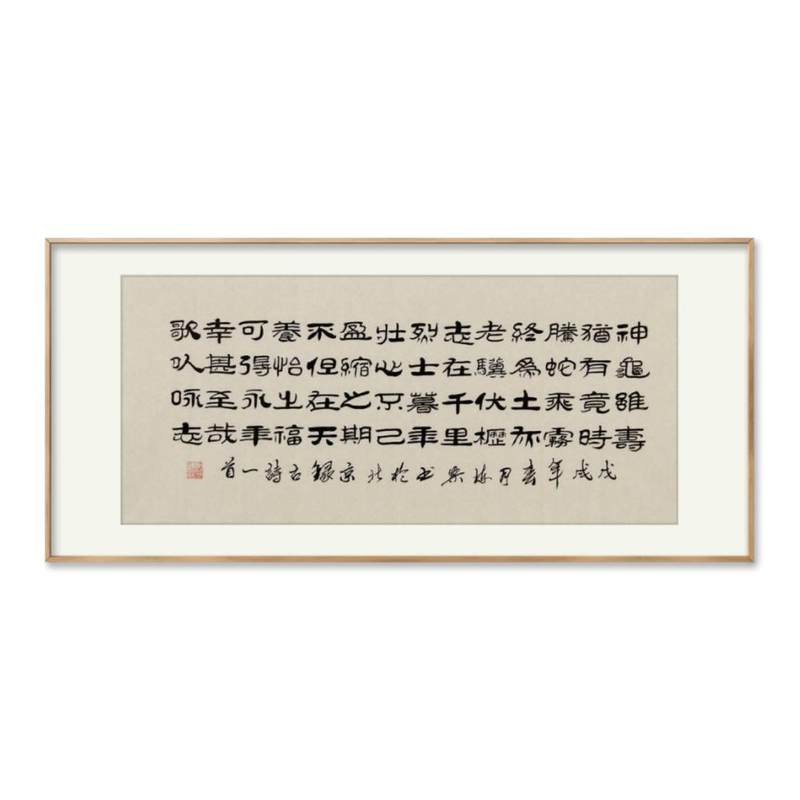 神龜雖壽
猶有竟時
騰蛇乘霧
終爲土灰
老驥伏櫪
志在千里
烈士暮年
壯心不已
盈縮之期
不但在天
養怡之福
可得永年
幸甚至哉
歌以咏志
戊戌年春月書於北京錄古詩一首